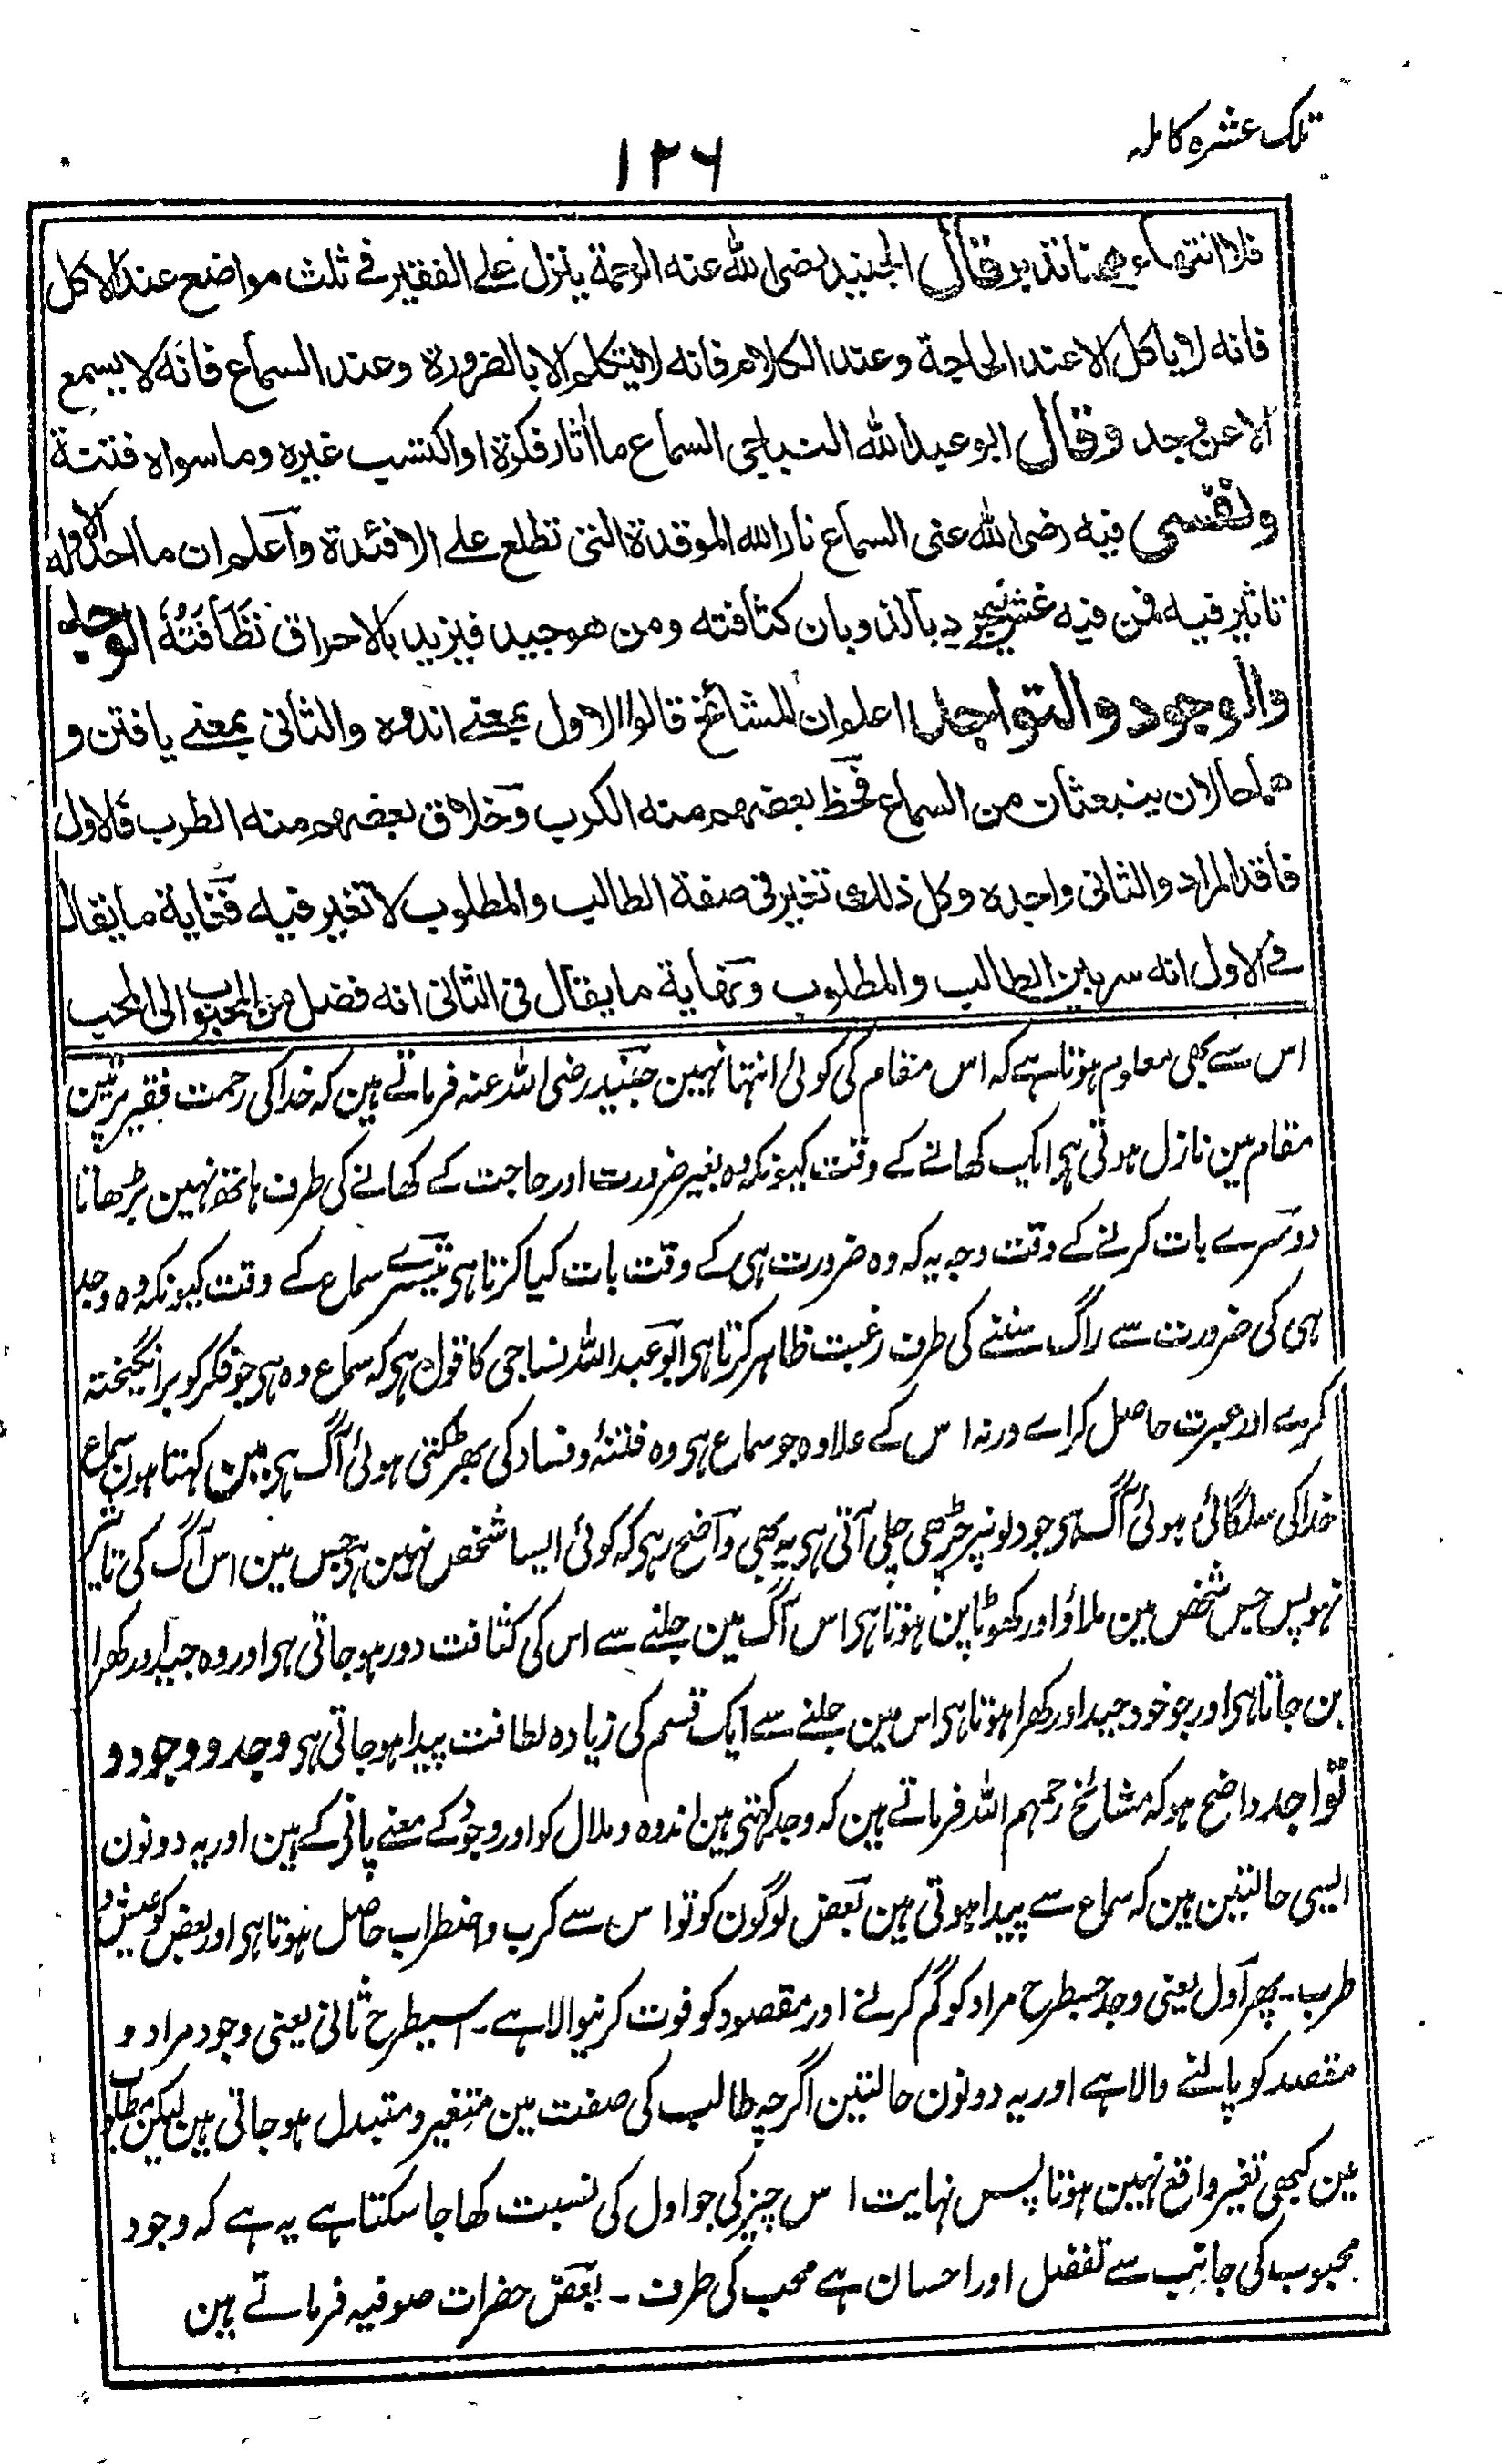 تلک عشرہ کاملہ
۱۲۶
فلا انتهاء ههنا تدبر قال الجنيد رضی الله عنه الرحمة ينزل علی الفقير فی ثلث مواضع عند الاكل
فانه لا ياكل الا عند الحاجة وعند الكلام فانه لا يتكلم الا بالضرورة وعند السماع فانه لا يسمع
الا عن وجد وقال ابو عبد الله النباجی السماع ما اثار فكرة او اكتسب غيره وما سواه فتنة
ونفسی فيه رضی الله عنی السماع نار الله الموقدة التی تطلع علی الافئدة واعلم ان ما احد الا وله
تاثير فيه فمن فيه غش بالذوبان كثافته ومن هو جيد فيزيد بالاحراق نظافته الوجد
والوجود والتواجد اعلموا ان المشائخ قالوا الاول بمعنے اندوه والثانی بمعنے يافتن و
هما حالان ينبعثان من السماع فحظ بعضهم منه الكرب وخلاق بعضهم منه الطرب فالاول
فاقد المراد والثانی واجده وكل ذلك تغير فی صفة الطالب والمطلوب لا تغير فيه فغاية ما يقال
فی الاول انه سر بين الطالب والمطلوب ونهاية ما يقال فی الثانی انه فضل من المحبوب الی المحب
اس سے بھی معلوم ہوتا ہے کہ اس مقام کی کوئی انتہا نہین جنید رضی اللہ عنہ فرماتے ہین کہ خدا کی رحمت فقیر پر تین
مقام مین نازل ہوتی ہی ایک کھانے کے وقت کیونکہ وہ بغیر ضرورت اور حاجت کے کھانے کی طرف ہاتھ نہین بڑھاتا
دوسرے بات کرنے کے وقت وجہ یہ کہ وہ ضرورت ہی کے وقت بات کیا کرتا ہی تیسرے سماع کے وقت کیونکہ وہ وجد
ہی کی ضرورت سے راگ سننے کی طرف رغبت ظاہر کرتا ہی ابو عبداللہ نساجی کا قول ہی کہ سماع وہ ہی جو فکر کو برانگیختہ
کرے اور عبرت حاصل کراے ورنہ اس کے علاوہ جو سماع ہی وہ فتنۂ و فساد کی بھڑکتی ہوئی آگ ہی مین کہتا ہون سماع
خدا کی سلگائی ہوئی آگ ہی جو دلونپر چڑھی چلی آتی ہی یہ بھی واضح رہی کہ کوئی ایسا شخص نہین ہی جس مین اس آگ کی تاثیر
نہو پس جس شخص مین ملاؤ اور کھوٹا پن ہوتا ہی اس آگ مین جلنے سے اس کی کثافت دور ہو جاتی ہی اور وہ جید اور کھرا
بن جاتا ہی اور جو خود جید اور کھرا ہوتا ہی اس مین جلنے سے ایک قسم کی زیادہ لطافت پیدا ہو جاتی ہی وجد و وجود و
تواجد واضح ہو کہ مشائخ رحمہم اللہ فرماتے ہین کہ وجد کہتی ہین اندوہ و ملال کو اور وجود کے معنے پانے کے ہین اور یہ دونون
ایسی حالتین ہین کہ سماع سے پیدا ہوتی ہین بعض لوگون کو تو اس سے کرب و اضطراب حاصل ہوتا ہی اور بعض کو عیش و
طرب۔ پھر اول یعنی وجد جسطرح مراد کو گم کرنے اور مقصود کو فوت کرنیوالا ہے۔ اسیطرح ثانی یعنی وجود مراد و
مقصد کو پالنے والا ہے اور یہ دونون حالتین اگرچہ طالب کی صفت مین متغیر و متبدل ہو جاتی ہین لیکن مطلوب
مین کبھی تغیر واقع نہین ہوتا پس نہایت اس چیز کی جو اول کی نسبت کہا جا سکتا ہے یہ ہے کہ وجود
محبوب کی جانب سے تفضل اور احسان ہے محب کی طرف ۔ بعض حضرات صوفیہ فرماتے ہین